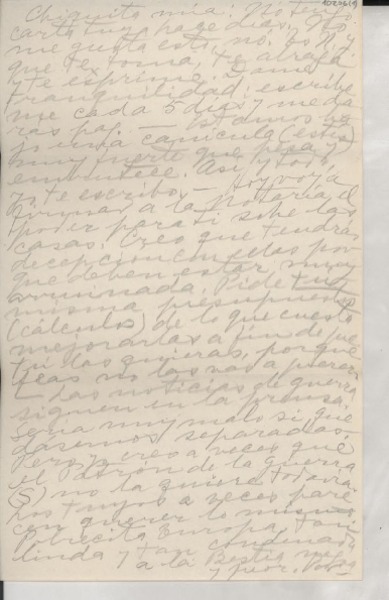 Chiquita mía: No tengo
carta tuya hace días. No
me gusta esto, no. Es N. y
que te toma, te atrapa
y te exprime. Dame
tranquilidad: escríbe
me cada 5 días y me da
rás paz. — Estamos ya
una canícula (estío)
muy fuerte que pesa y
embrutece. Así, y todo
yo te escribo. — Hoy voy a
firmar a la Notaría el
poder para ti sobre las
casas. Creo que tendrás
decepción con ellas por
que deben estar muy
arruinadas. Pide tú
misma presupuesto
(cálculos) de lo que cuesta
mejorarlas a fin de que
tú las quieras, porque
feas no las vas a querer.
— Las noticias de guerra
siguen en la prensa.
Sería muy malo si que
dásemos separadas.
Pero yo creo a veces que
el Patrón de la guerra
(S) no la quiere todavía.
Los tuyos a veces pare
cen querer lo mismo.
Pobrecita Europa, tan
linda y tan condenada
a la Bestia
y peor.